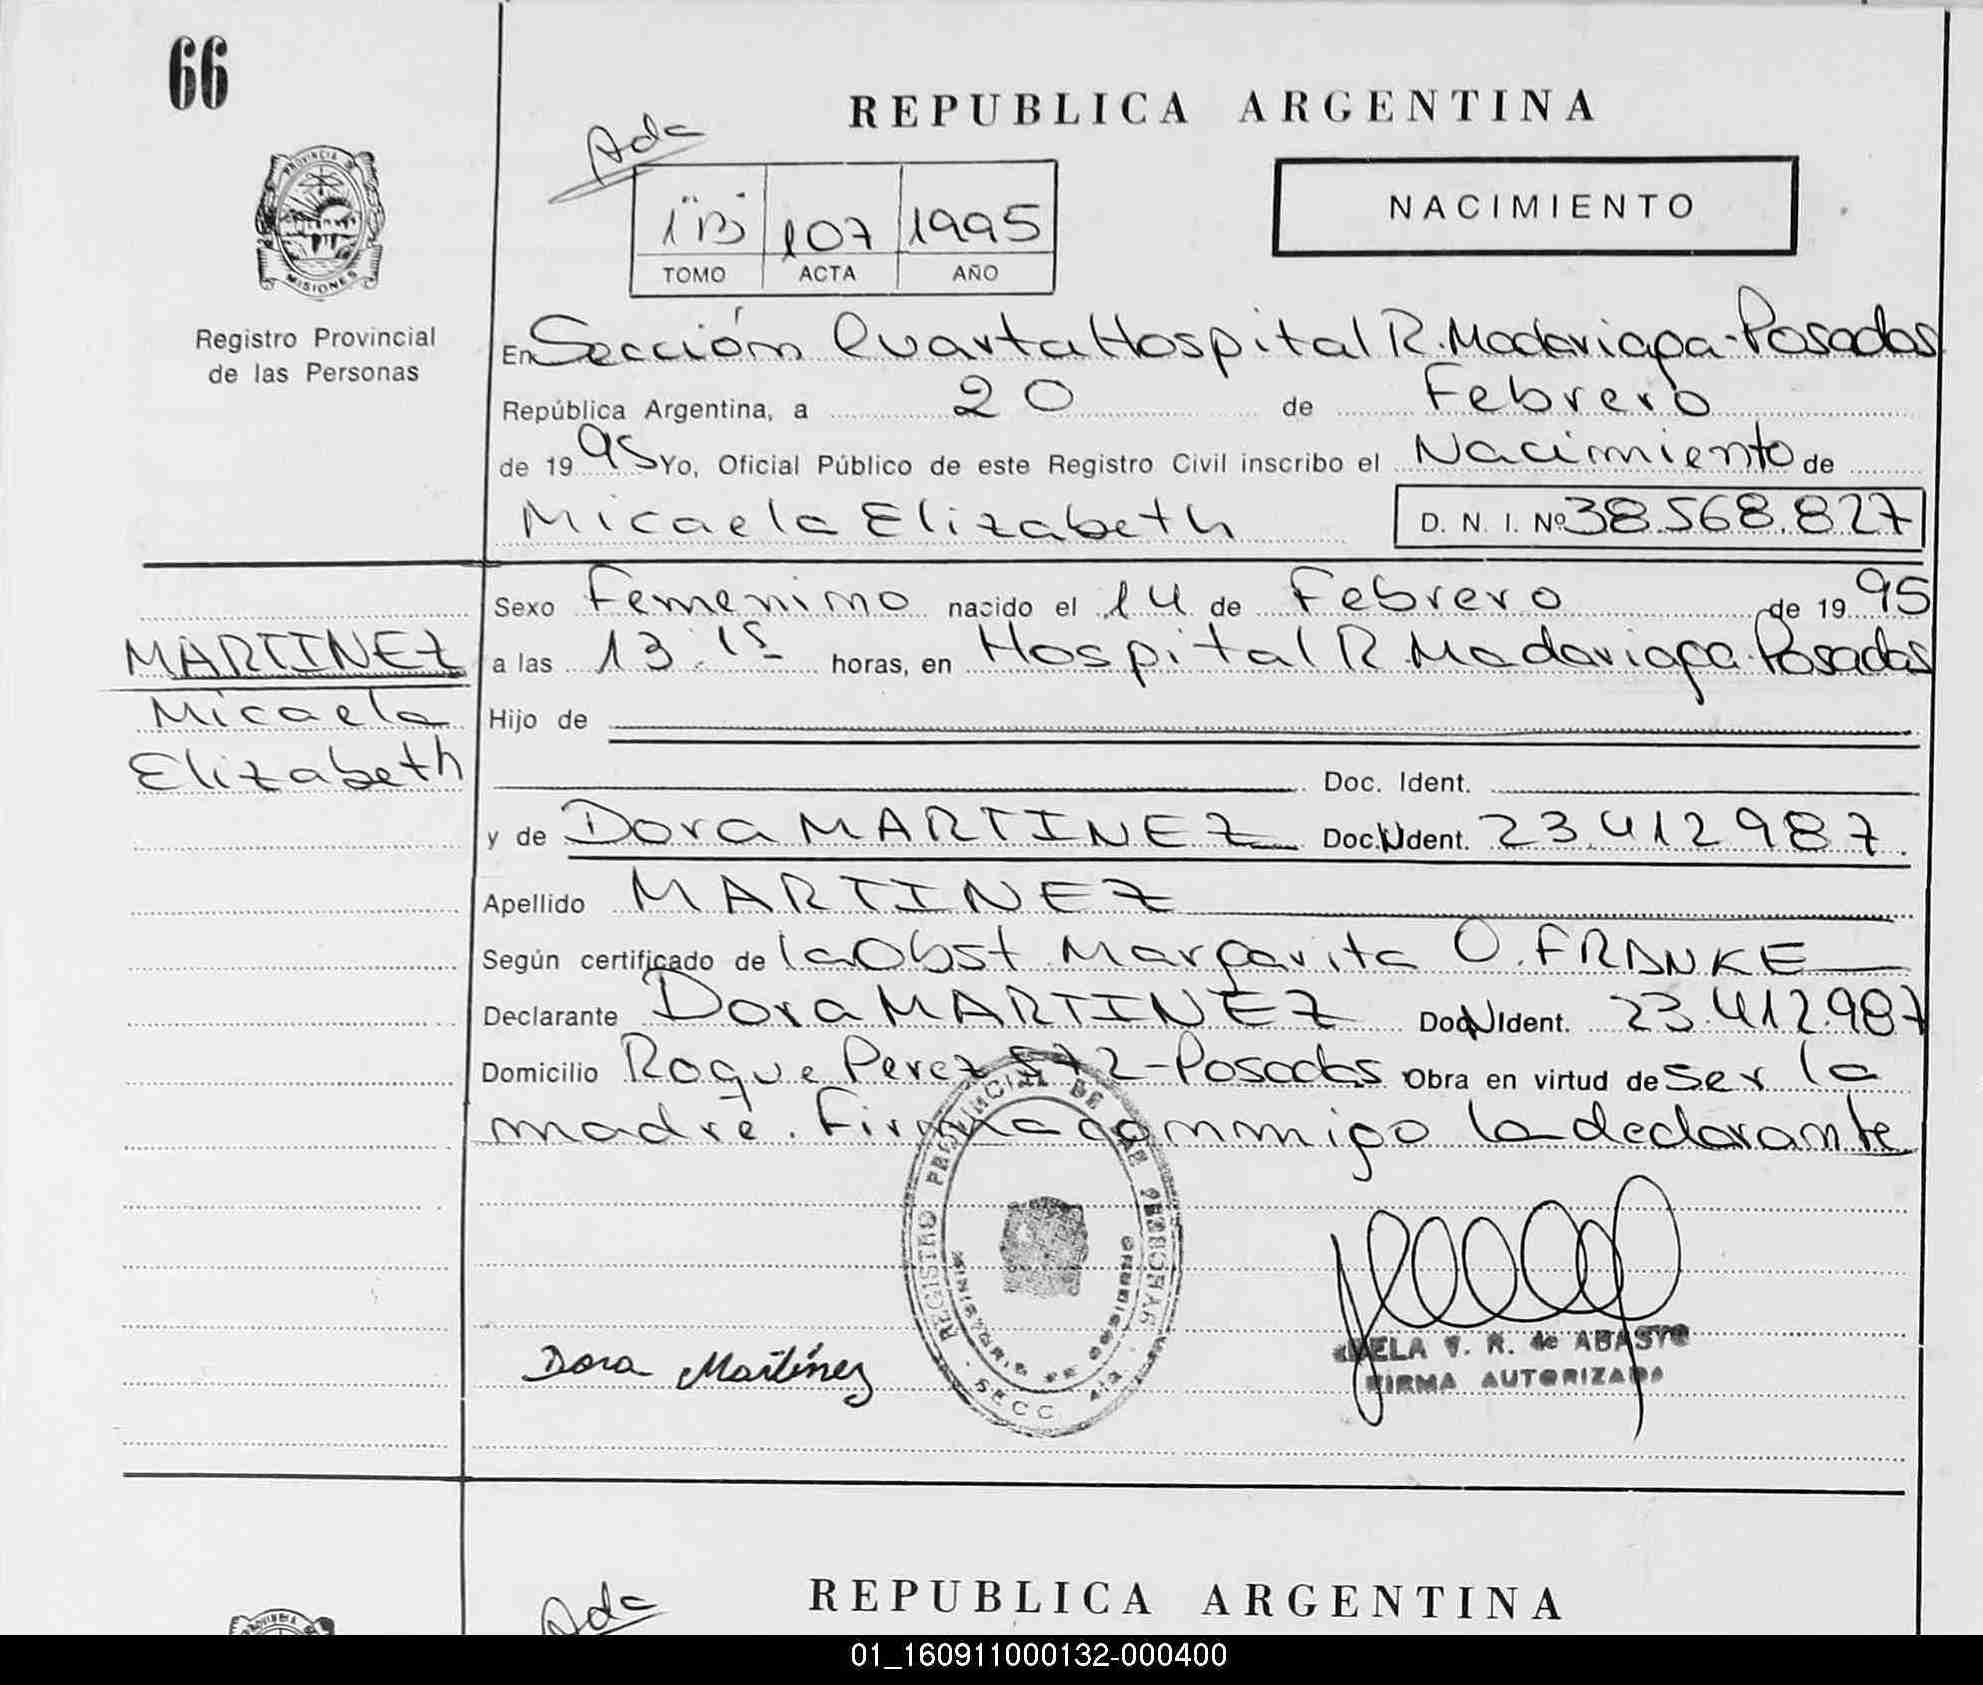 66
REPUBLICA ARGENTINA
Ada
NACIMIENTO
1"B" 107 1995
TOMO ACTA AÑO
PROVINCIA DE MISIONES
Registro Provincial
de las Personas
En Sección Cuarta Hospital R. Madariaga-Posadas
República Argentina, a 20 de Febrero
de 1995 Yo, Oficial Público de este Registro Civil inscribo el Nacimiento de
Micaela Elizabeth D. N. I. Nº 38.568.827
Sexo Femenino nacido el 14 de Febrero de 1995
MARTINEZ
Micaela
Elizabeth
a las 13.15 horas, en Hospital R. Madariaga-Posadas
Hijo de
Doc. Ident.
y de Dora MARTINEZ Doc. Ident. 23.412987.
Apellido MARTINEZ
Según certificado de la Obst Margarita O. FRANKE
Declarante Dora MARTINEZ Doc. Ident. 23.412.987
Domicilio Roque Perez 572-Posadas Obra en virtud de ser la
madre. Firma conmigo la declarante
REGISTRO PROVINCIAL DE LAS PERSONAS
MINISTERIO DE GOBIERNO
SECC 4ta
Dora Martínez
V. R. de ABASTO
FIRMA AUTORIZADA
REPUBLICA ARGENTINA
Ada
PROVINCIA
01_160911000132-000400